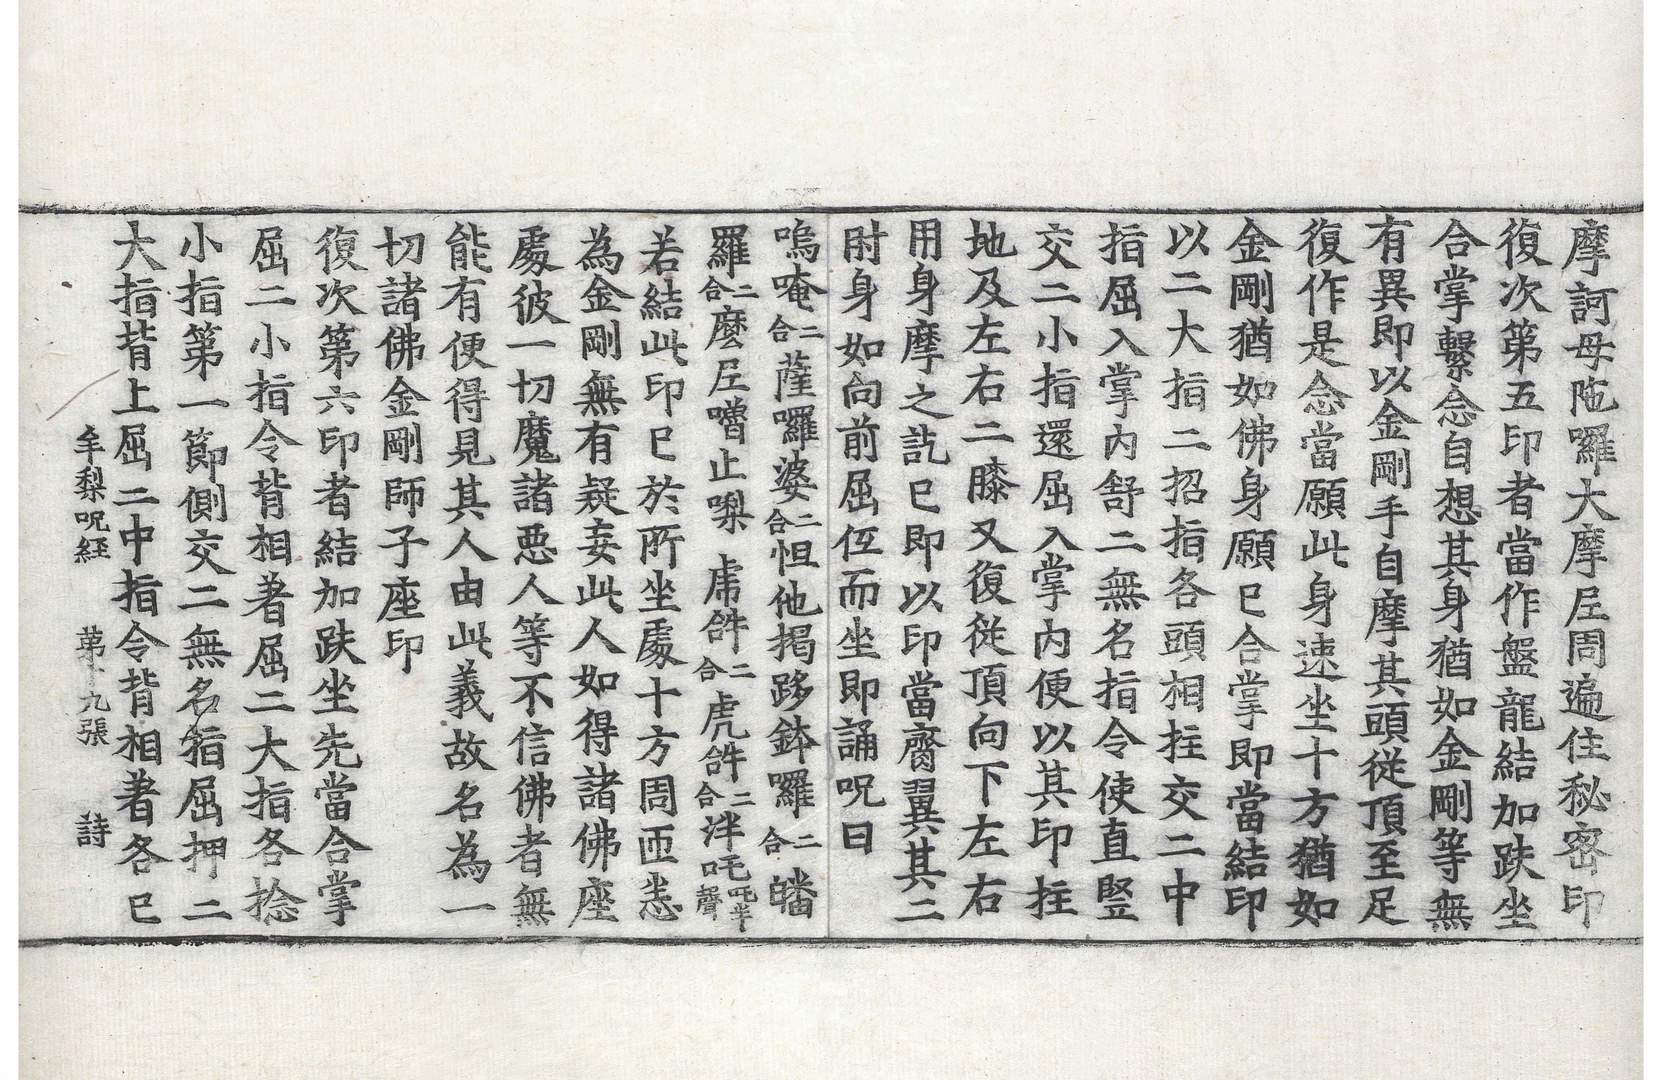 摩訶母陁囉大摩𡱝周遍住秘密印
復次第五印者當作盤龍結加趺坐
合掌繫念自想其身猶如金剛等無
有異即以金剛手自摩其頭從頂至足
復作是念當願此身速坐十方猶如
金剛猶如佛身願已合掌即當結印
以二大指二招指各頭相拄交二中
指屈入掌内舒二無名指令使直竪
交二小指還屈入掌内便以其印拄
地及左右二膝又復從頂向下左右
用身摩之訖已即以印當齊翼其二
肘身如向前屈伍而坐即誦呪曰
嗚唵二合薩囉婆二合怛他揭跢鉢囉二合皤
羅二合麼𡱝噆止㗚虎𤙖二合虎𤙖二合泮吒吒半聲
若結此印已於所坐處十方周匝悉
為金剛無有疑妄此人如得諸佛座
處彼一切魔諸惡人等不信佛者無
能有便得見其人由此義故名為一
切諸佛金剛師子座印
復次第六印者結加趺坐先當合掌
屈二小指令背相著屈二大指各捻
小指第一節側交二無名指屈押二
大指背上屈二中指令背相著各已
牟梨呪経　第十九張　詩